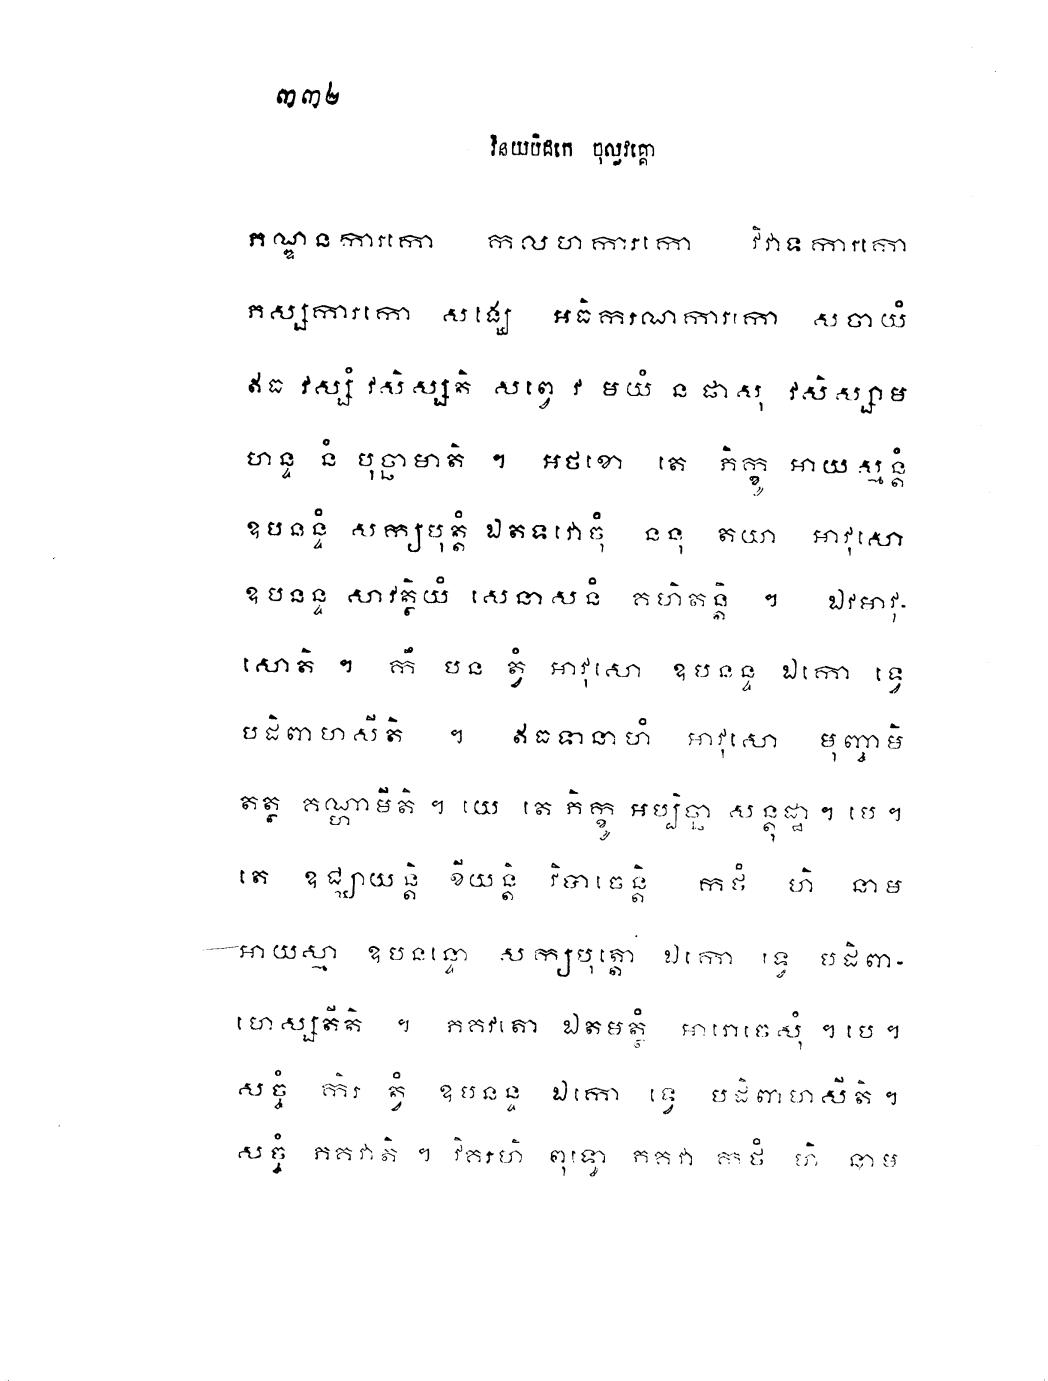 ៣៣២
វិនយបិដកេ ចុល្លវគ្គោ
ភណ្ឌនការកោ កលហការកោ វិវាទការកោ
ភស្សការកោ សង្ឃេ អធិករណការកោ សចាយំ
ឥធ វស្សំ វសិស្សតិ សព្វេ វ មយំ ន ផាសុ វសិស្សាម
ហន្ទ នំ បុច្ឆាមាតិ ។ អថខោ តេ ភិក្ខូ អាយស្មន្តំ
ឧបនន្ទំ សក្យបុត្តំ ឯតទវោចុំ ននុ តយា អាវុសោ
ឧបនន្ទ សាវត្ថិយំ សេនាសនំ គហិតន្តិ ។ ឯវអាវុ-
សោតិ ។ កឹ បន ត្វំ អាវុសោ ឧបនន្ទ ឯកោ ទ្វេ
បដិពាហសីតិ ។ ឥធទានាហំ អាវុសោ មុញ្ចាមិ
តត្ថ គណ្ហាមីតិ ។ យេ តេ ភិក្ខូ អប្បិច្ឆា សន្តុដ្ឋា ។ បេ ។
តេ ឧជ្ឈាយន្តិ ខីយន្តិ វិបាចេន្តិ កថំ ហិ នាម
អាយស្មា ឧបនន្ទោ សក្យបុត្តោ ឯកោ ទ្វេ បដិពា-
ហេស្សតីតិ ។ ភគវតោ ឯតមត្ថំ អារោចេសុំ ។ បេ ។
សច្ចំ កិរ ត្វំ ឧបនន្ទ ឯកោ ទ្វេ បដិពាហសីតិ ។
សច្ចំ ភគវាតិ ។ វិគរហិ ពុទ្ធោ ភគវា កថំ ហិ នាម